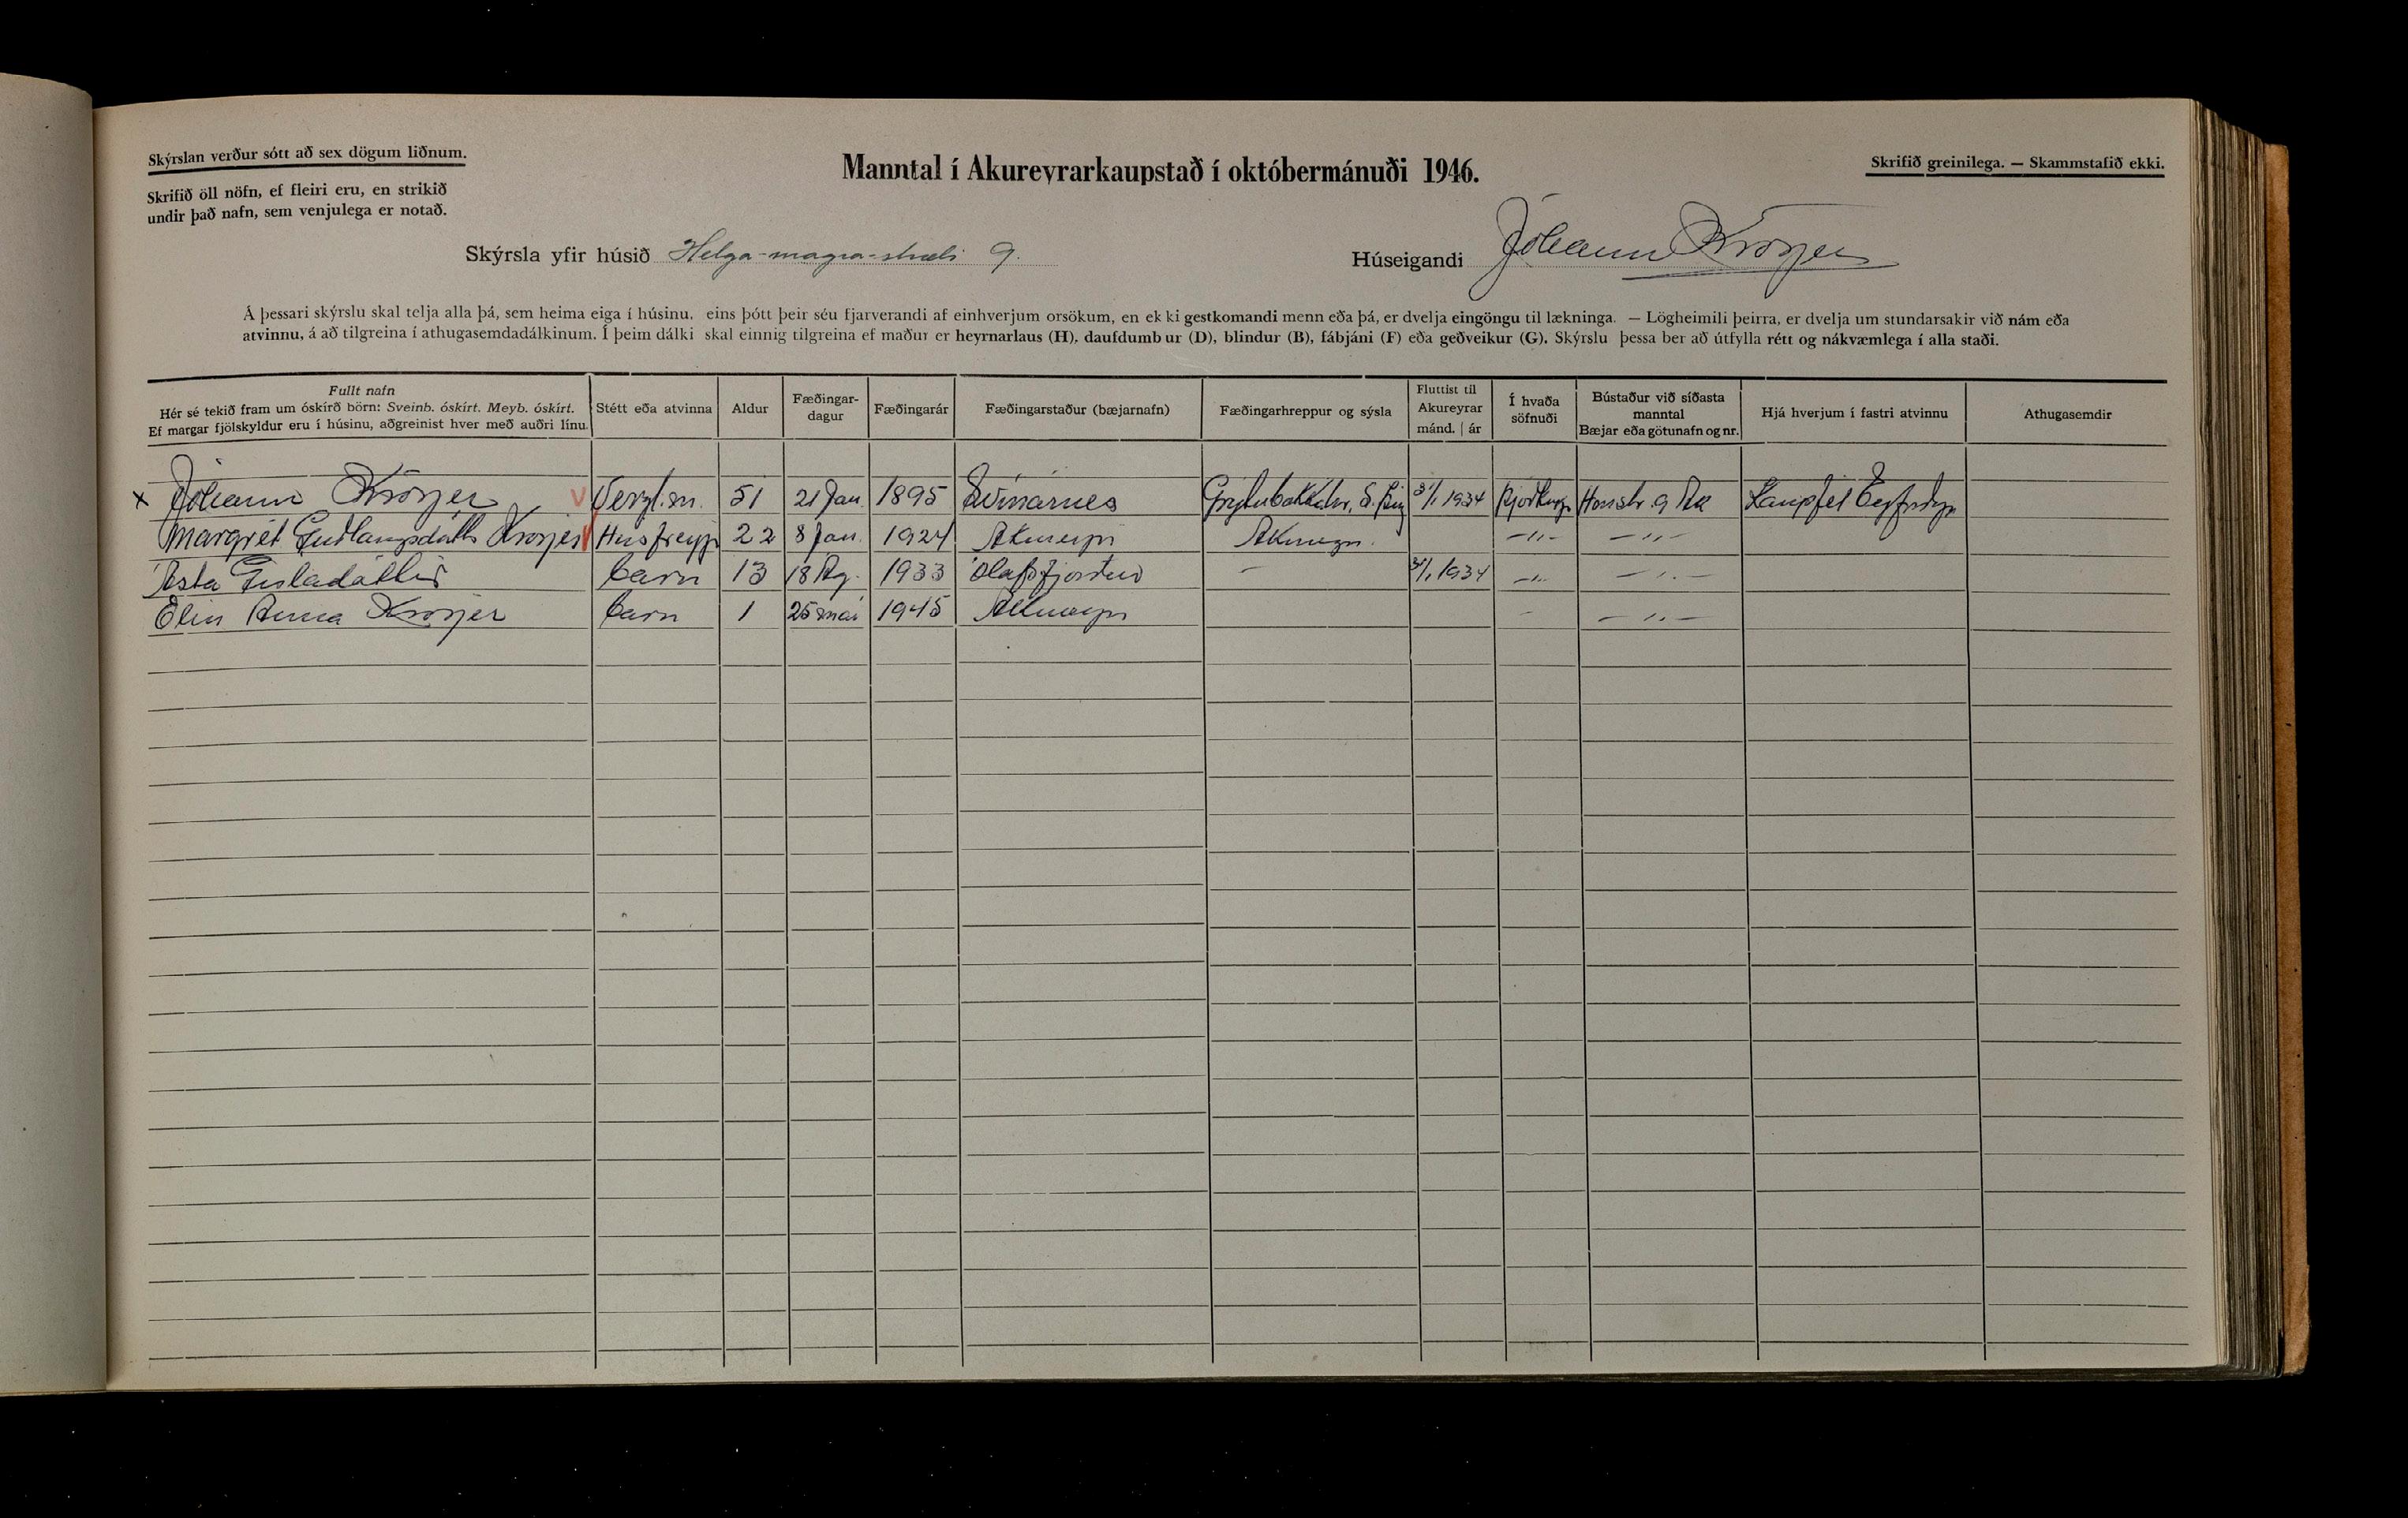 Skýrslan verður sótt að sex dögum liðnum.
Skrifið öll nöfn, ef fleiri eru, en strikið
undir það nafn, sem venjulega er notað.
Manntal í Akureyrarkaupstað í októbermánuði 1946.
Skrifið greinilega. — Skammstafið ekki.
Skýrsla yfir húsið Helga-magra-stræti 9.
Húseigandi Jóhann Kröyer
Á þessari skýrslu skal telja alla þá, sem heima eiga í húsinu, eins þótt þeir séu fjarverandi af einhverjum orsökum, en ek ki gestkomandi menn eða þá, er dvelja eingöngu til lækninga. — Lögheimili þeirra, er dvelja um stundarsakir við nám eða
atvinnu, á að tilgreina í athugasemdadálkinum. Í þeim dálki skal einnig tilgreina ef maður er heyrnarlaus (H), daufdumb ur (D), blindur (B), fábjáni (F) eða geðveikur (G). Skýrslu þessa ber að útfylla rétt og nákvæmlega í alla staði.
Fullt nafn
Hér sé tekið fram um óskírð börn: Sveinb. óskírt. Meyb. óskírt.
Ef margar fjölskyldur eru í húsinu, aðgreinist hver með auðri línu.
Stétt eða atvinna
Aldur
Fæðingar-
dagur
Fæðingarár
Fæðingarstaður (bæjarnafn)
Fæðingarhreppur og sýsla
Fluttist til
Akureyrar
mánd. | ár
Í hvaða
söfnuði
Bústaður við síðasta
manntal
Bæjar eða götunafn og nr.
Hjá hverjum í fastri atvinnu
Athugasemdir
x Jóhann Kröyer V Verzl.m. 51 21 Jan. 1895 Svínárnes Grýtubakkahr. S. Þing 31/1 1934 Þjóðkirkj 9 Ak Kaupfél Eyfirðinga
Margrét Guðlaugsdóttir Kröyer V Húsfreyja 22 8 Jan. 1924 Akureyri Akureyri -"- -"-
Ásta Gísladóttir barn 13 18 Ág. 1933 Ólafsfjörður - 31/1 1934 -"- -"-
Elín Anna Kröyer barn 1 25 maí 1945 Akureyri - -"-